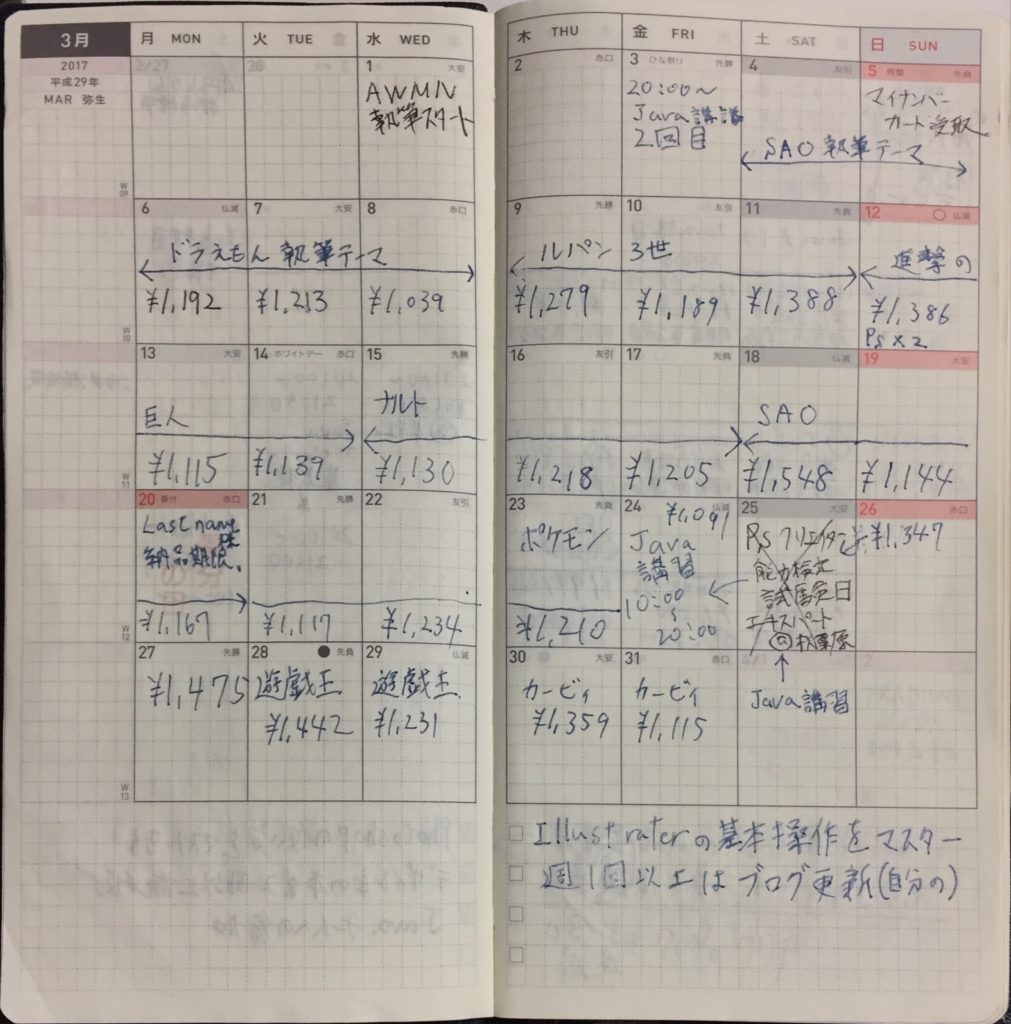 3月
月 MON
火 TUE
水 WED
木 THU
金 FRI
土 SAT
日 SUN
2017
平成29年
MAR 弥生
2/27
28
1 大安
AWMN
執筆スタート
2 赤口
3 ひな祭り 先勝
20:00〜
Java講
2回目
4 友引
SAO 執筆テーマ
5 先負
マイナンバー
カード受取
W 09
6 仏滅
7 大安
8 赤口
ドラえもん 執筆テーマ
¥1,192
¥1,213
¥1,039
9 先勝
10 友引
11 先負
12 仏滅
ルパン 3世
進撃の
¥1,279
¥1,189
¥1,388
¥1,386
Ps×2
W 10
13 大安
14 ホワイトデー 赤口
15 先勝
巨人
ナルト
¥1,115
¥1,139
¥1,130
16 友引
17 先負
18 仏滅
19 大安
SAO
¥1,218
¥1,205
¥1,548
¥1,144
W 11
20 春分 赤口
21 先勝
22 友引
Last name
納品期限。
¥1,167
¥1,117
¥1,234
23 先負
ポケモン
¥1,210
24 仏滅
¥1,091
Java
講習
10:00
〜
20:00
25 大安
Psクリエイター
能力検定
試験日
エキスパート
26 赤口
¥1,347
W 12
27 先勝
28 先負
29 仏滅
¥1,475
遊戯王
¥1,442
遊戯王
¥1,231
30 大安
31 赤口
カービィ
¥1,359
カービィ
¥1,115
Java講習
W 13
Illustraterの基本操作をマスター
週1回以上はブログ更新(自分の)